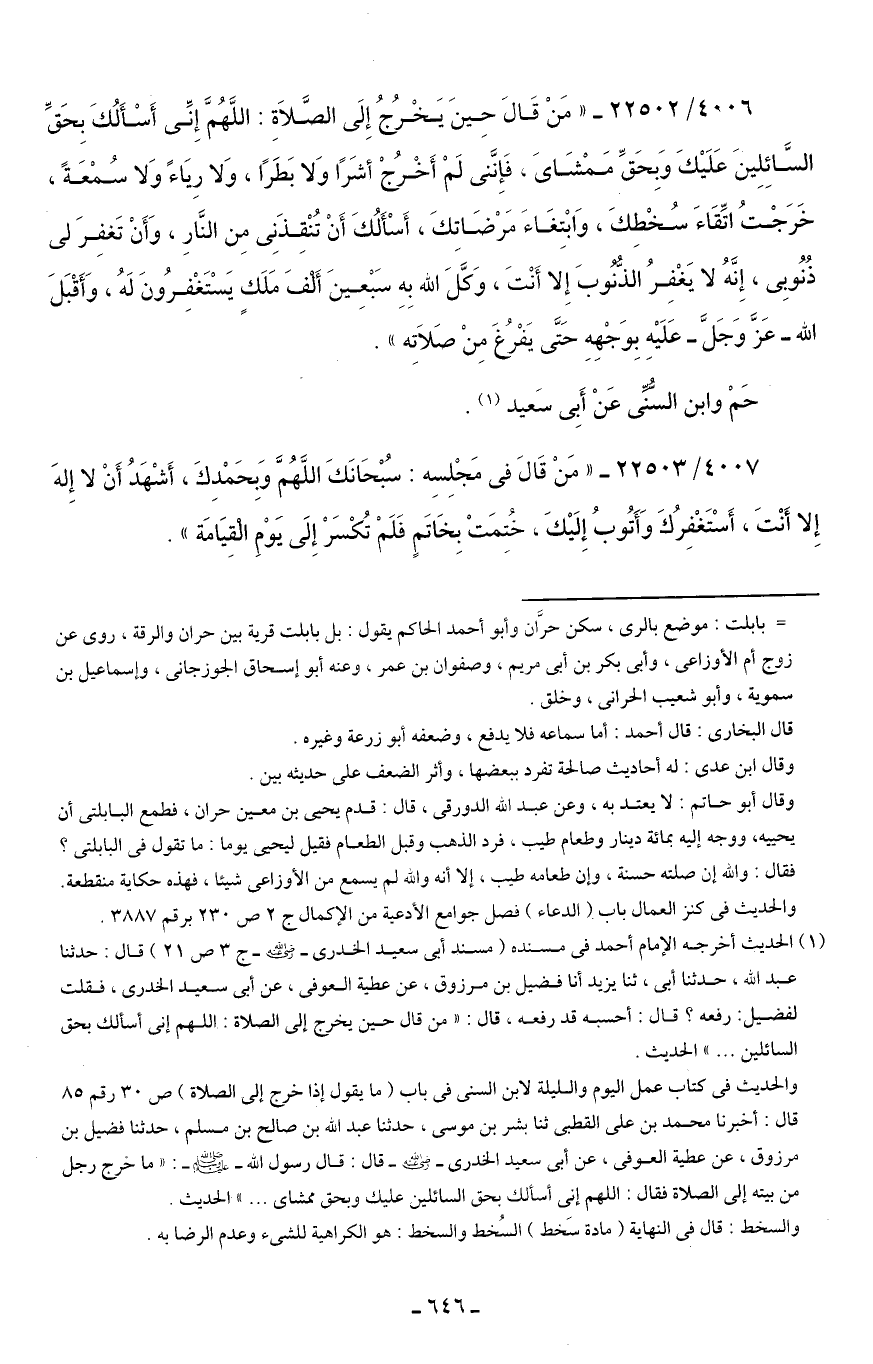 ٢٢٥٠٢/٤٠٠٦ ـ « مَنْ قَالَ حِينَ يَخْرُجُ إِلَى الصَّلَاةِ : اللَّهُمَّ إِنِّى أَسْأَلُكَ بِحَقِّ
السَّائِلِينَ عَلَيْكَ وَبِحَقِّ مَمْشَاىَ ، فَإِنَّنى لَمْ أَخْرُجْ أشَرًا وَلَا بَطَرًا ، وَلَا رِيَاءً وَلَا سُمْعَةً ،
خَرَجْتُ اتِّقَاءَ سُخْطِكَ ، وَابْتِغَاءَ مَرْضَاتِكَ ، أَسْأَلُكَ أَنْ تُنْقِذَنِى مِن النَّارِ ، وَأَنْ تَغْفِرَ لى
ذُنُوبِى ، إِنَّهُ لا يَغْفِرُ الذُّنُوبَ إِلا أَنْتَ ، وَكَّلَ الله بِهِ سَبْعِينَ أَلْفَ مَلَكٍ يَسْتَغْفِرُونَ لَهُ ، وَأَقْبَلَ
الله ـ عَزَّ وَجَلَّ ـ عَلَيْهِ بِوَجْهِهِ حَتَّى يَفْرُغَ مِنْ صَلَاتِه » .
حَمْ وابن السُّنِّى عَنْ أَبِى سَعِيد (١) .
٢٢٥٠٣/٤٠٠٧ ـ « مَنْ قَالَ فى مَجْلِسِه : سُبْحَانَكَ اللَّهُمَّ وَبِحَمْدِكَ ، أَشْهَدُ أَنْ لا إِلهَ
إِلا أَنْتَ ، أَسْتَغْفِرُكَ وَأَتُوبُ إِلَيْكَ ، خُتِمَتْ بِخَاتَمٍ فَلَمْ تُكْسَرْ إِلَى يَوْمِ الْقِيَامَة » .
= بابلت : موضع بالرى ، سكن حرَّان وأبو أحمد الحاكم يقول : بل بابلت قرية بين حران والرقة ، روى عن
زوج أم الأوزاعى ، وأبى بكر بن أبى مريم ، وصفوان بن عمر ، وعنه أبو إسحاق الجوزجانى ، وإسماعيل بن
سموية ، وأبو شعيب الحرانى ، وخلق .
قال البخارى : قال أحمد : أما سماعه فلا يدفع ، وضعفه أبو زرعة وغيره .
وقال ابن عدى : له أحاديث صالحة تفرد ببعضها ، وأثر الضعف على حديثه بين .
وقال أبو حاتم : لا يعتد به ، وعن عبد الله الدورقى ، قال : قدم يحيى بن معين حران ، فطمع البابلتى أن
يحييه، ووجه إليه بمائة دينار وطعام طيب ، فرد الذهب وقبل الطعام فقيل ليحيى يوما : ما تقول فى البابلتى ؟
فقال : والله إن صلته حسنة ، وإن طعامه طيب ، إلا أنه والله لم يسمع من الأوزاعى شيئا ، فهذه حكاية منقطعة.
والحديث فى كنز العمال باب ( الدعاء ) فصل جوامع الأدعية من الإكمال ج ٢ ص ٢٣٠ برقم ٣٨٨٧ .
(١) الحديث أخرجه الإمام أحمد فى مسنده ( مسند أبى سعيد الخدرى ـ رضي الله عنه ـ ج ٣ ص ٢١ ) قال : حدثنا
عبد الله ، حدثنا أبى ، ثنا يزيد أنا فضيل بن مرزوق ، عن عطية العوفى ، عن أبى سعيد الخدرى ، فقلت
لفضيل: رفعه ؟ قال : أحسبه قد رفعه ، قال : « من قال حين يخرج إلى الصلاة : اللهم إنى أسألك بحق
السائلين ... » الحديث .
والحديث فى كتاب عمل اليوم والليلة لابن السنى فى باب ( ما يقول إذا خرج إلى الصلاة ) ص ٣٠ رقم ٨٥
قال : أخبرنا محمد بن على القطبى ثنا بشر بن موسى ، حدثنا عبد الله بن صالح بن مسلم ، حدثنا فضيل بن
مرزوق ، عن عطية العوفى ، عن أبى سعيد الخدرى ـ رضي الله عنه ـ قال : قال رسول الله ـ ﷺ ـ : « ما خرج رجل
من بيته إلى الصلاة فقال : اللهم إنى أسألك بحق السائلين عليك وبحق ممشاى ... » الحديث .
والسخط : قال فى النهاية ( مادة سَخط ) السُخط والسخط : هو الكراهية للشىء وعدم الرضا به .
ـ ٦٤٦ ـ